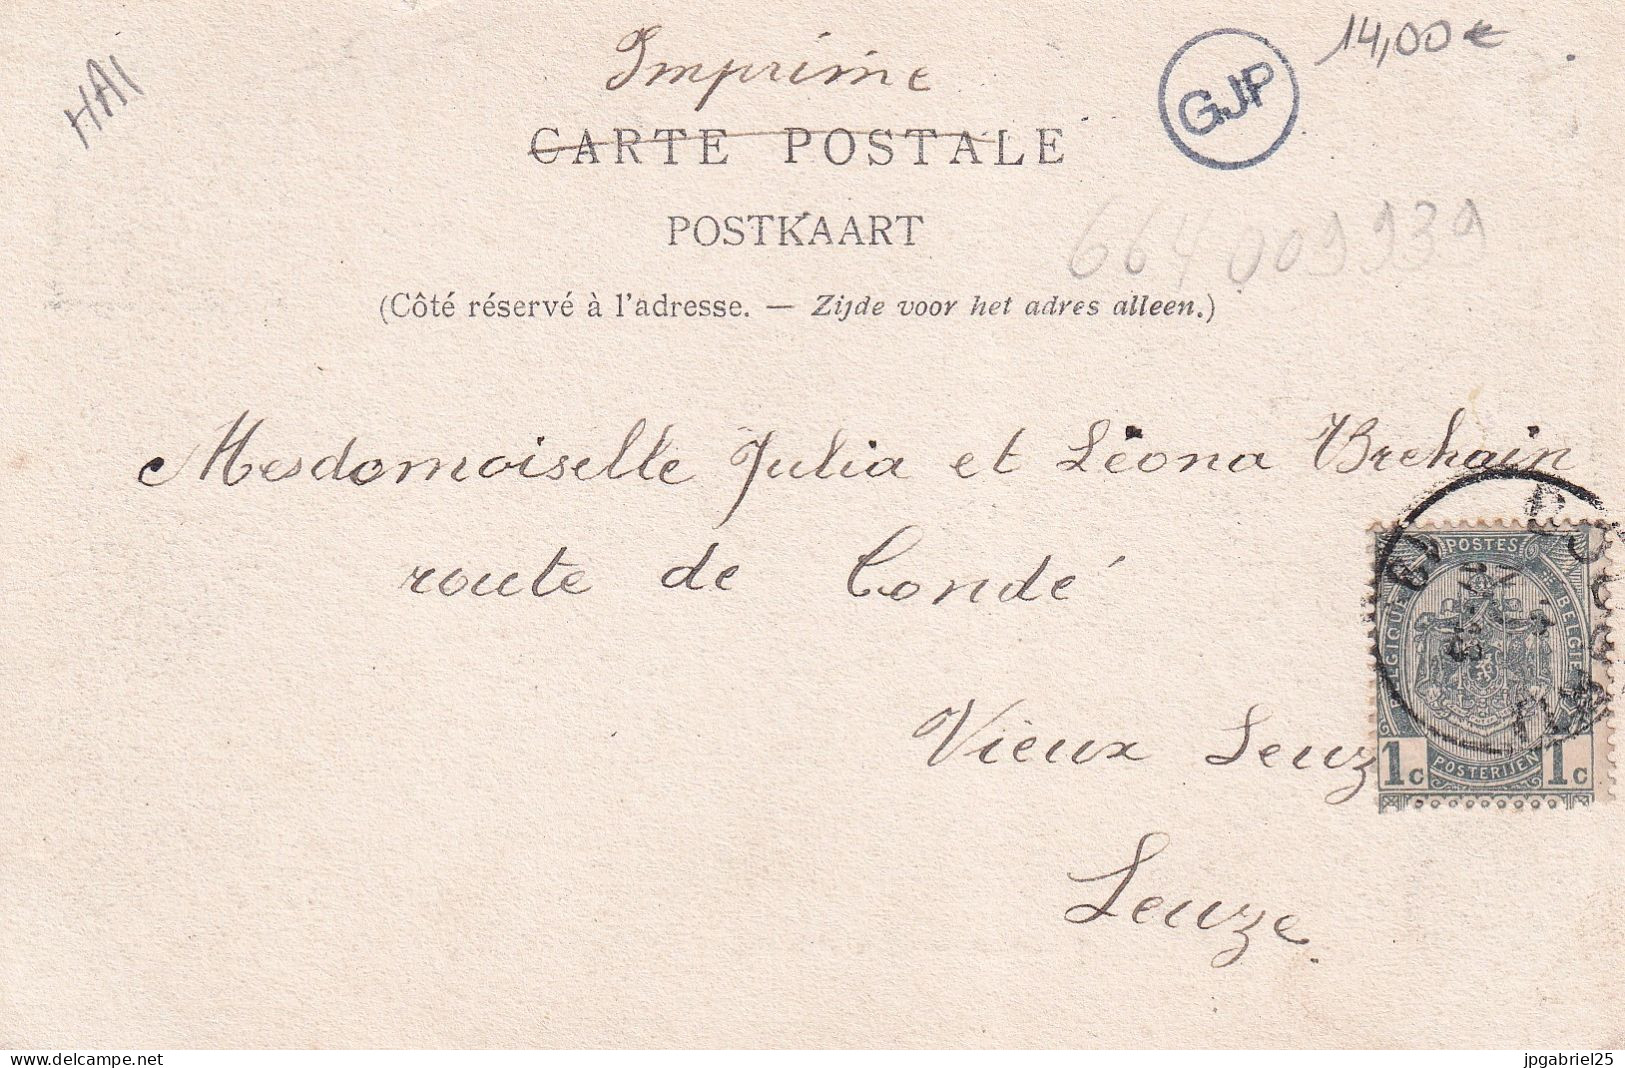 HAI
Imprime
GJP
14,00€
CARTE POSTALE
POSTKAART
664 009939
(Côté réservé à l'adresse. — Zijde voor het adres alleen.)
Mesdomoiselle Julia et Léona Brehain
route de Condé
Vieux Leuz
Leuze.
POSTES
BELGIQUE
BELGIE
1c POSTERIJEN 1c
delcampe.net
jpgabriel25